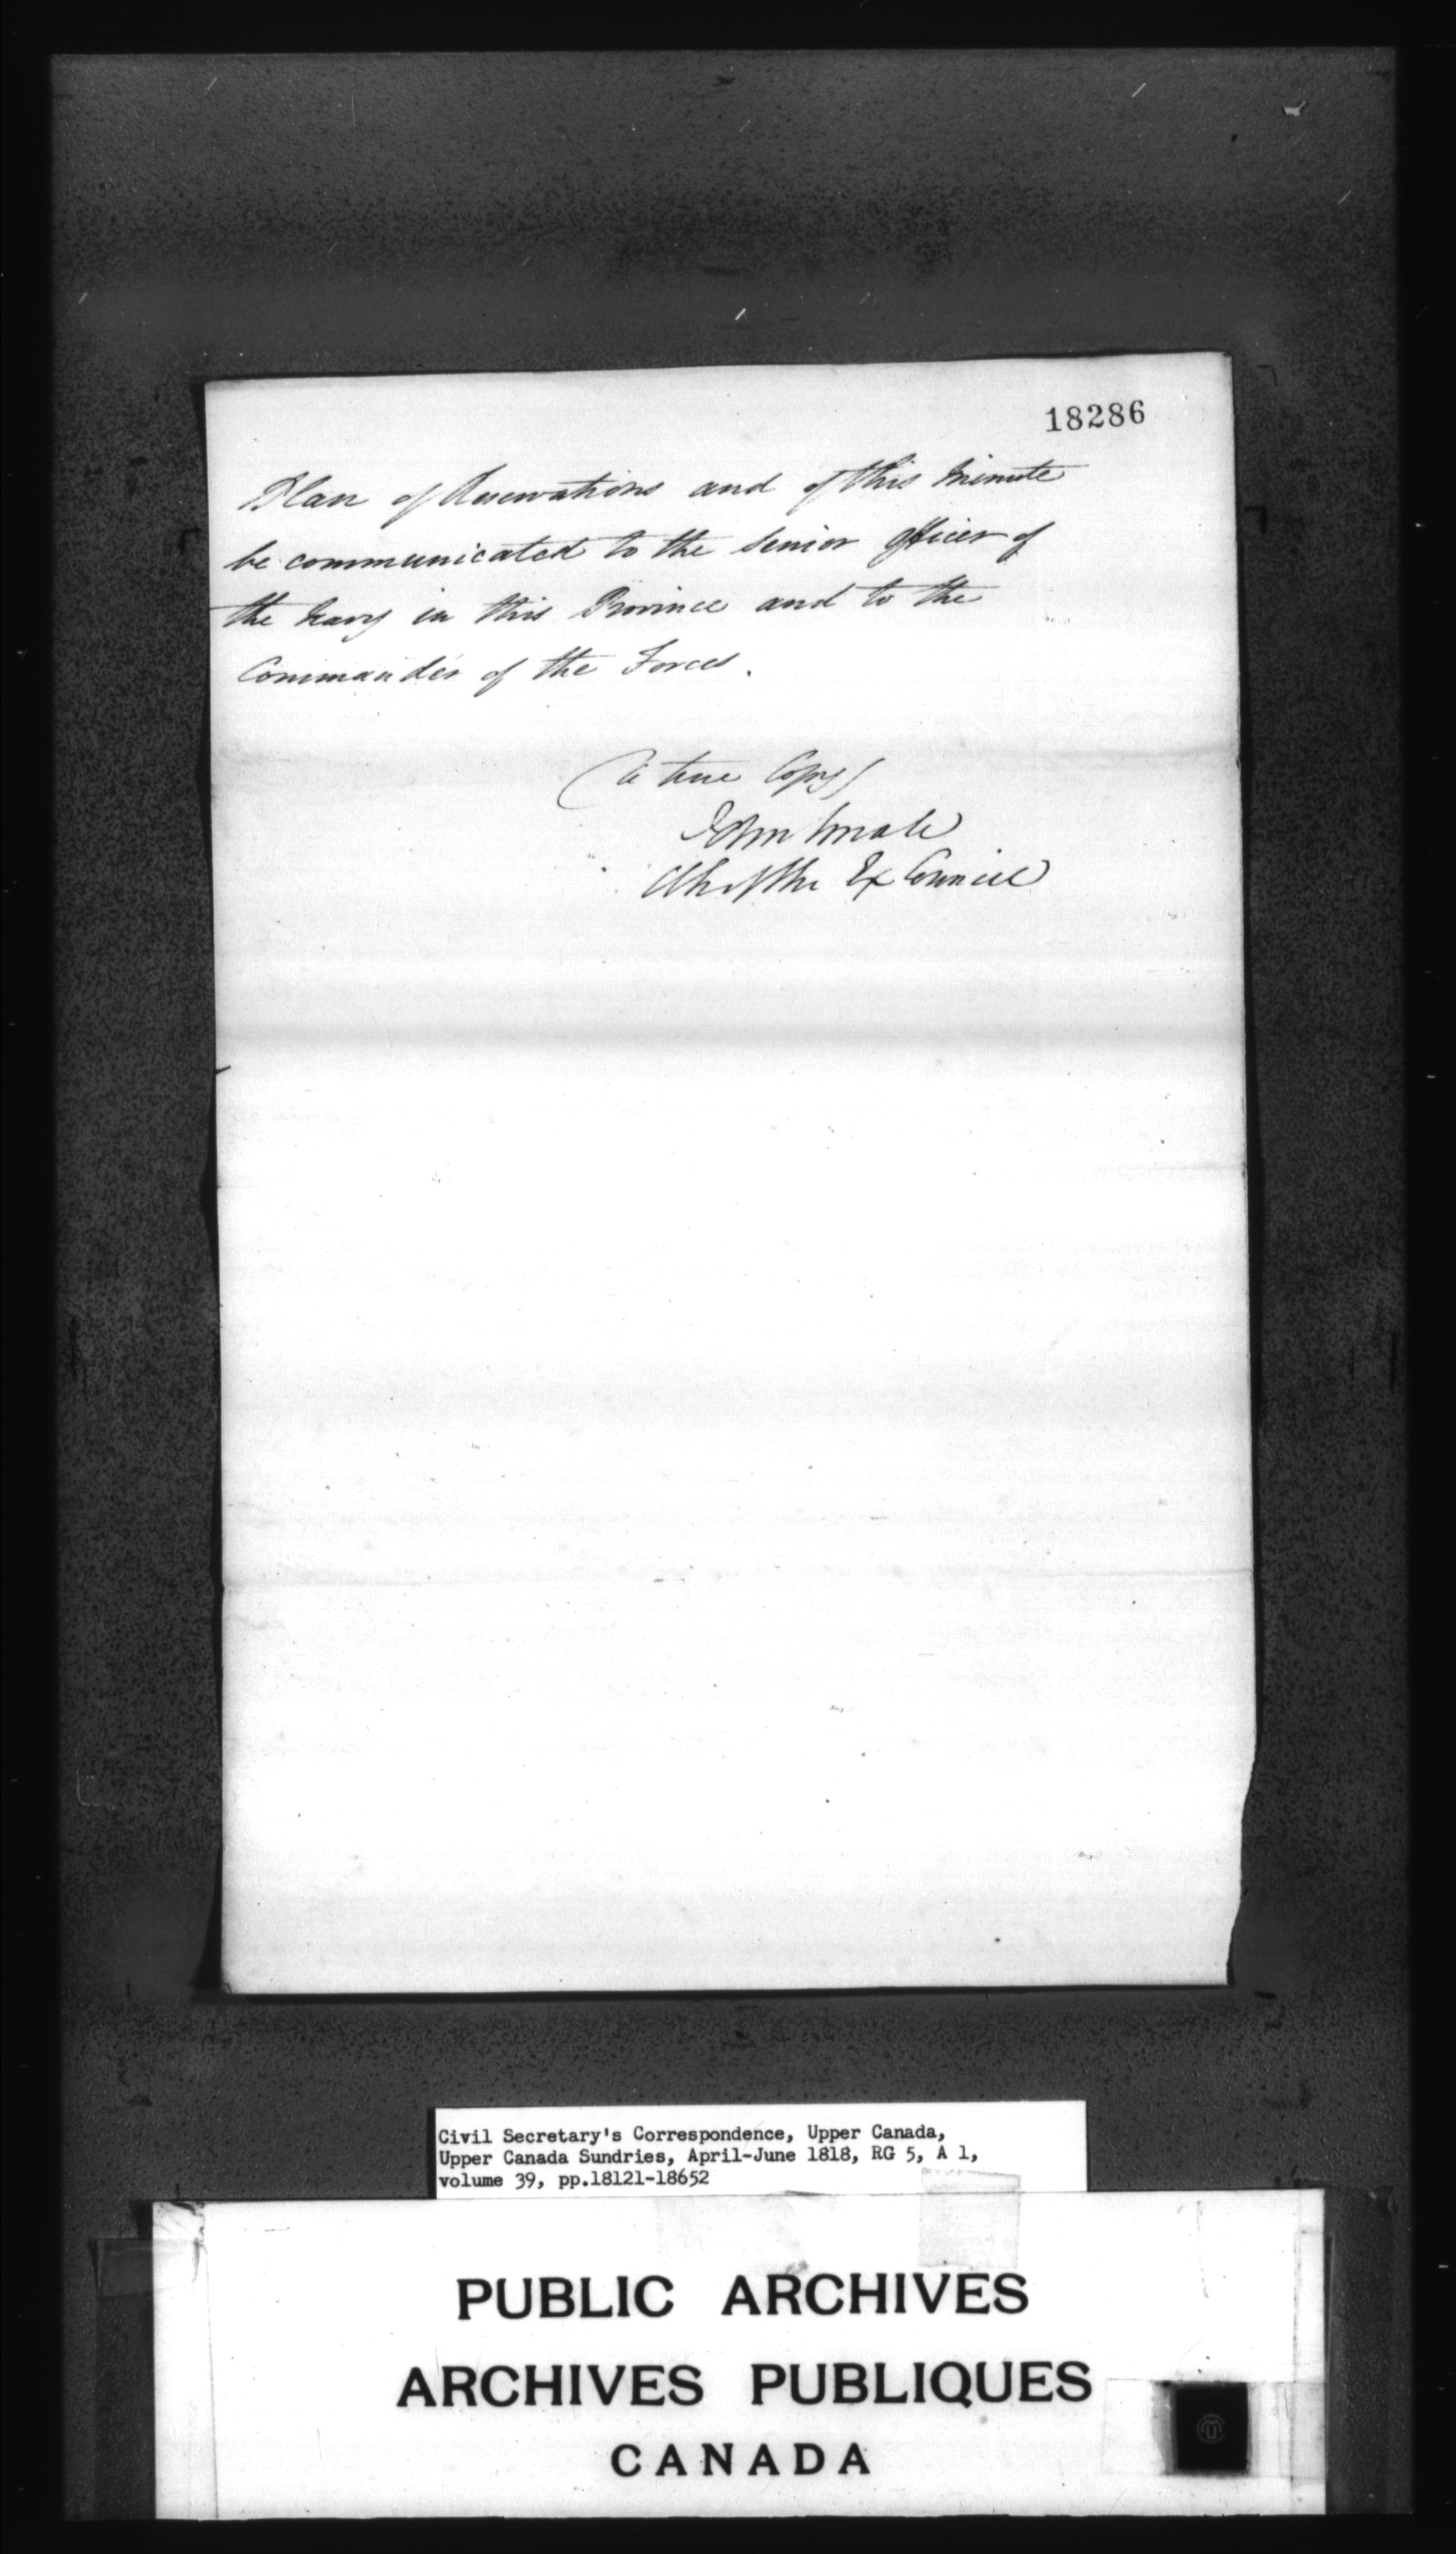 18286
Plan of Reservations and of this Minute
be communicated to the Senior officer of
the Navy in this Province and to the
Commander of the Forces.
(A true Copy)
John Small
Clk of the Ex Council
Civil Secretary's Correspondence, Upper Canada,
Upper Canada Sundries, April-June 1818, RG 5, A 1,
volume 39, pp.18121-18652
PUBLIC ARCHIVES
ARCHIVES PUBLIQUES
CANADA